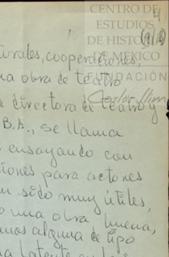 CENTRO DE
ESTUDIOS
DE HISTORIA
DE MÉXICO
FUNDACIÓN
Carlos Slim
4
urales, cooperaciones,
na obra de teatro
a directora de teatro y
B.A., se llama
ensayando con
iones para actores
sido muy útiles,
una obra buena,
mos alguna de tipo
latente